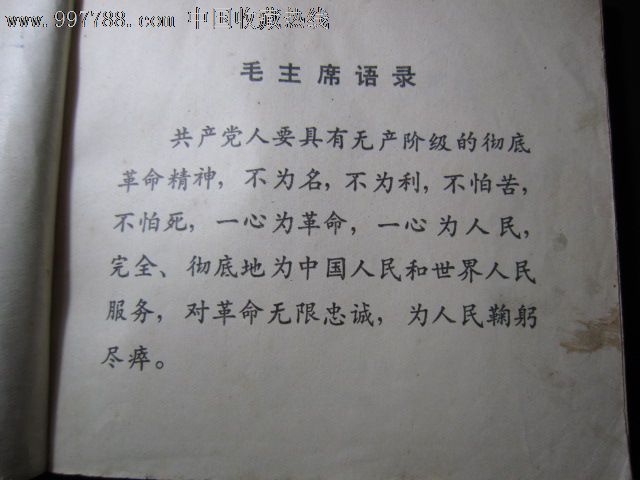 www.997788.com 中国收藏热线
毛主席语录
共产党人要具有无产阶级的彻底
革命精神，不为名，不为利，不怕苦，
不怕死，一心为革命，一心为人民，
完全、彻底地为中国人民和世界人民
服务，对革命无限忠诚，为人民鞠躬
尽瘁。